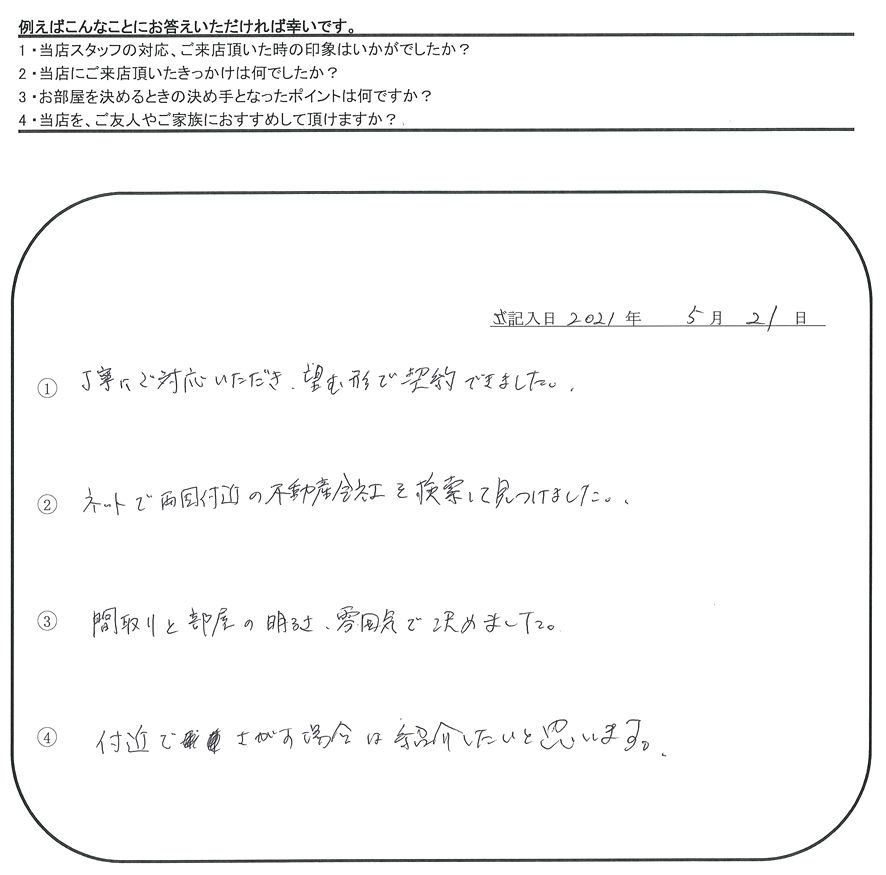 例えばこんなことにお答えいただければ幸いです。
1・当店スタッフの対応、ご来店頂いた時の印象はいかがでしたか？
2・当店にご来店頂いたきっかけは何でしたか？
3・お部屋を決めるときの決め手となったポイントは何ですか？
4・当店を、ご友人やご家族におすすめして頂けますか？
記入日 2021 年 5 月 21 日
① 丁寧にご対応いただき、望む形で契約できました。
② ネットで両国付近の不動産会社を検索して見つけました。
③ 間取りと部屋の明るさ、雰囲気で決めました。
④ 付近でさがす場合は紹介したいと思います。